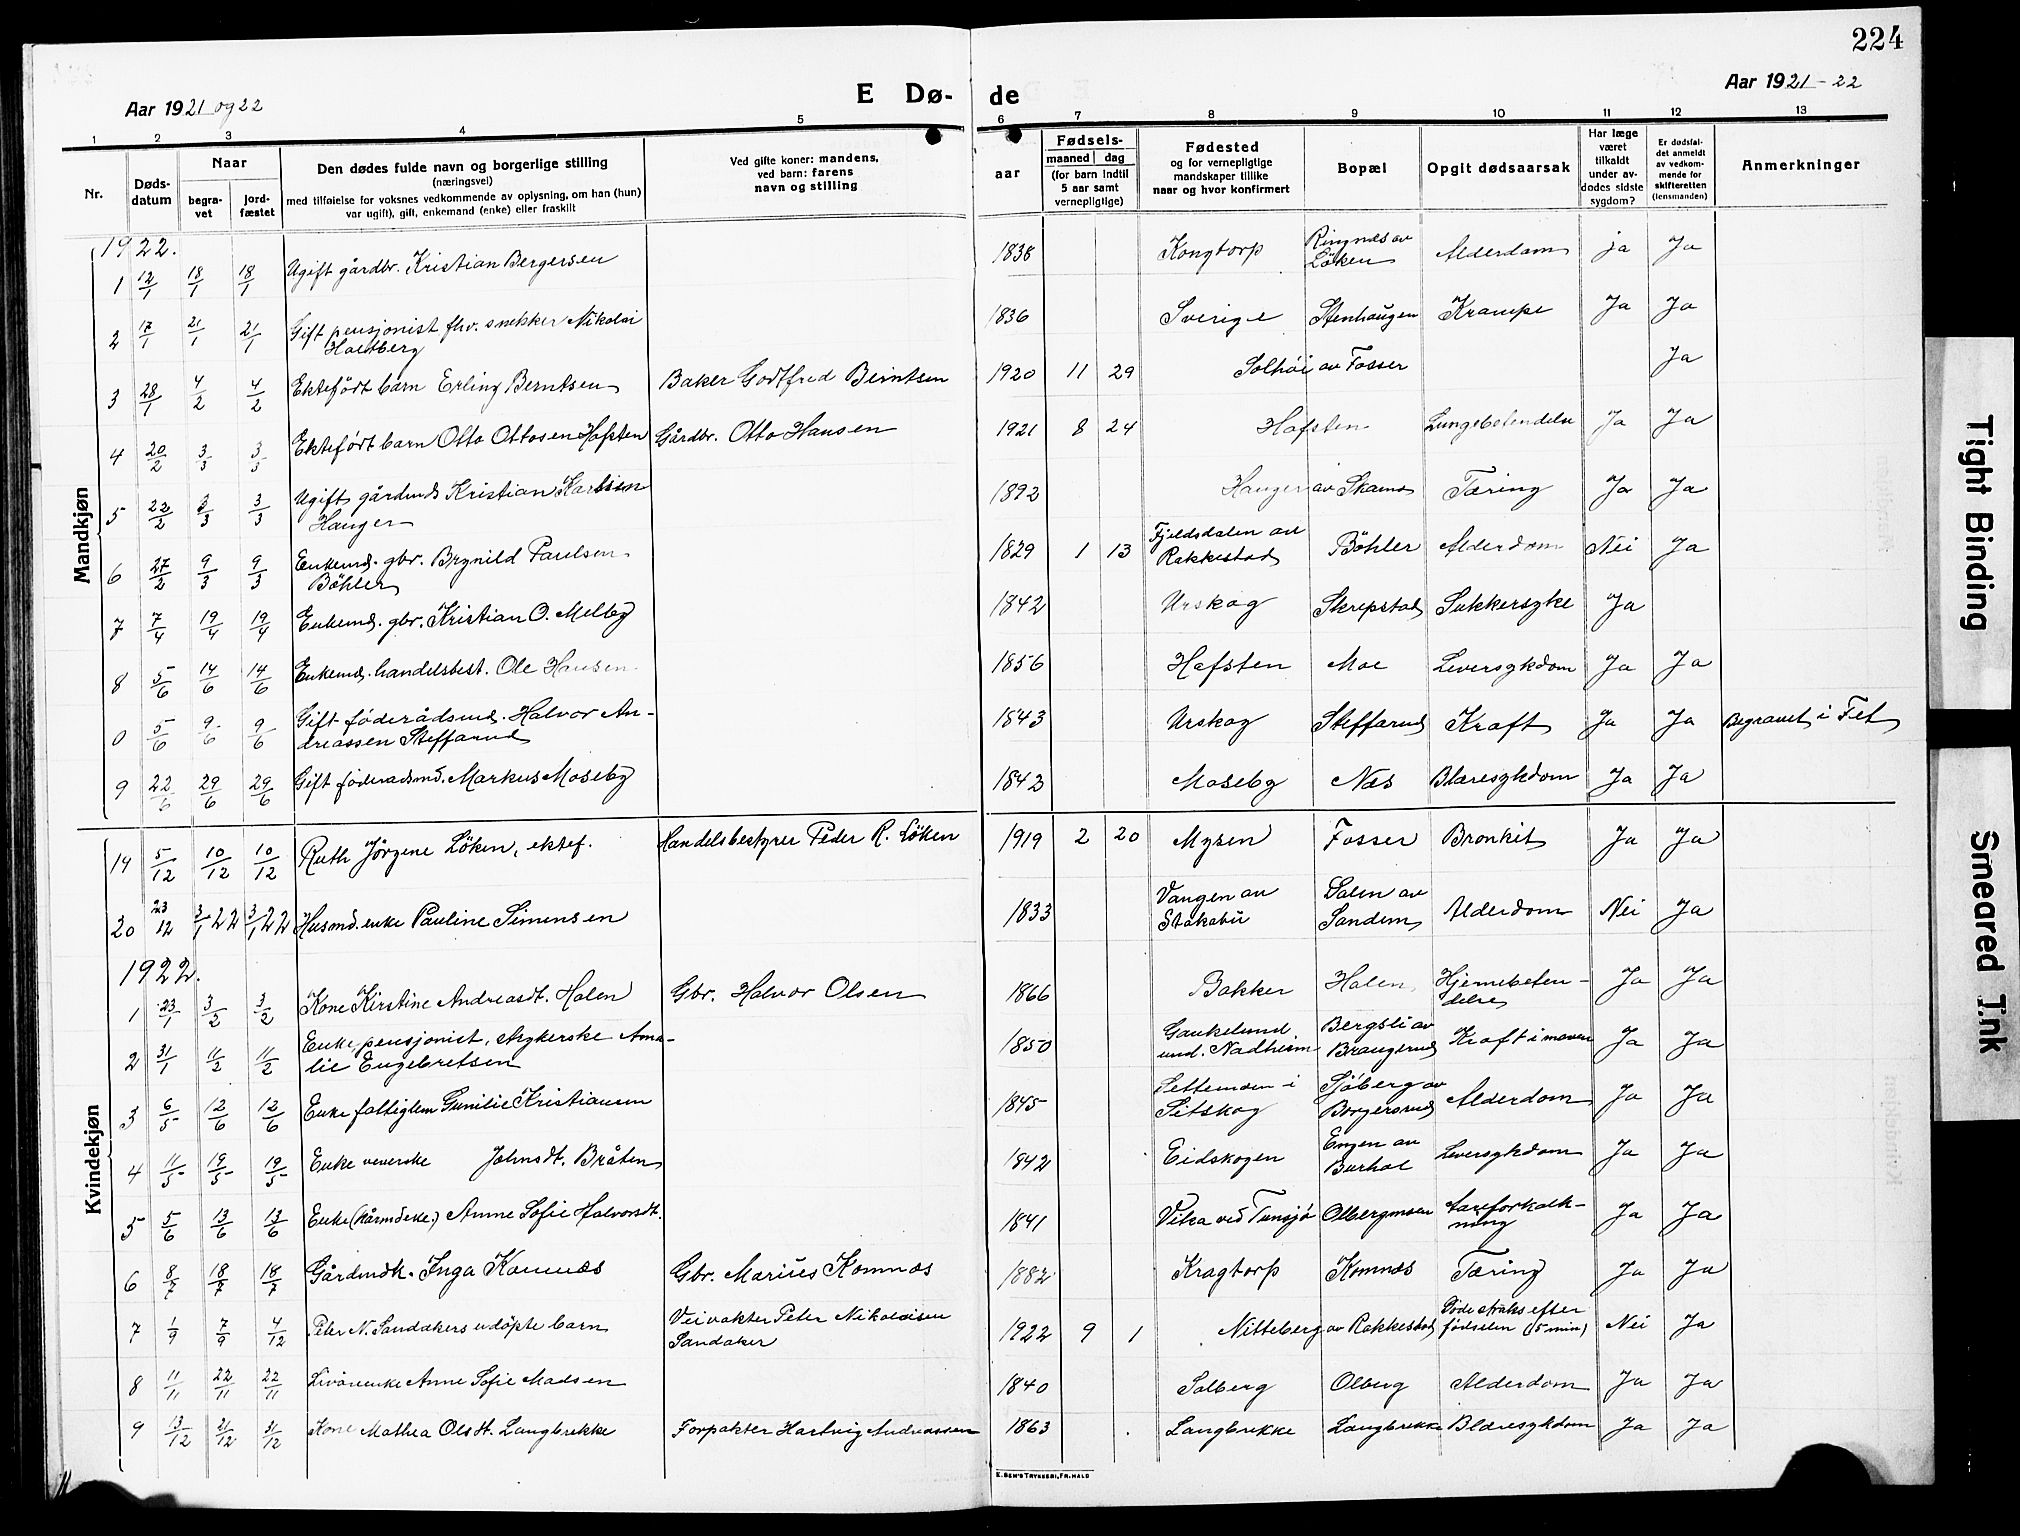 224
Aar 1921 og 22
E Dø-
de
Aar 1921-22
1 2 3 4 5 6 7 8 9 10 11 12 13
Nr.
Døds-
datum
Naar
begra-
vet
jord-
fæstet
Den dødes fulde navn og borgerlige stilling
(næringsvei)
med tilføielse for voksnes vedkommende av oplysning, om han (hun)
var ugift), gift, enkemand (enke) eller fraskilt
Ved gifte koner: mandens,
ved barn: farens
navn og stilling
aar
Fødsels-
maaned dag
(for barn indtil
5 aar samt
vernepligtige)
Fødested
og for vernepligtige
mandskaper tillike
naar og hvor konfirmert
Bopæl
Opgit dødsaarsak
Har læge
været
tilkaldt
under av-
dødes sidste
sygdom?
Er dødsfal-
det anmeldt
av vedkom-
mende for
skifteretten
(lensmanden)
Anmerkninger
Mandkjøn
1922.
1 12/1 18/1 18/1 Ugift gårdbr. Kristian Bergersen 1838 Kongtorp Ringnæs av Løken Alderdom ja Ja
2 17/1 21/1 21/1 Gift pensjonist fhv. snekker Nikolai
Holtberg 1836 Sverige Stenhaugen Krampe Ja Ja
3 28/1 4/2 4/2 Ektefødt barn Erling Berntsen Baker Godtfred Berntsen 1920 11 29 Solhøi av Fosser Ja
4 20/2 3/3 3/3 Ektefört barn Otto Ottosen Hofsten Gårdbr. Otto Hansen 1921 8 24 Hofsten Lungebetendelse Ja Ja
5 22/2 3/3 3/3 Ugift gårdmd Kristian Karlsen
Hanger 1892 Hanger av Skamo Tæring Ja Ja
6 27/2 9/3 9/3 Enkemd. gbr. Brynild Paulsen
Böhler 1829 1 13 Fjeldsdalen av
Rakkestad Böhler Alderdom Nei Ja
7 7/4 19/4 19/4 Enkemd. gbr. Kristian O. Melby 1842 Urskog Skrepstad Sukkersyke Ja
8 5/6 14/6 14/6 Enkemd. handelsbest. Ole Hansen 1856 Hafsten Moe Leversykdom Ja Ja
0 5/6 9/6 9/6 Gift föderådsmd. Halvor An-
dreassen Steffarud 1843 Urskog Steffarud Kræft Ja Ja Begravet i Fet
9 22/6 29/6 29/6 Gift föderadsmd. Markus Moseby 1842 Moseby Næs Blæresykdom Ja Ja
Kvindekjøn
19 5/12 10/12 10/12 Ruth Jörgine Löken, ektef. Handelsbestyrer Peder R. Löken 1919 2 20 Mysen Fosser Bronkit Ja Ja
20 23/12 3/1 22 3/1 22 Husmd. enke Pauline Simensen 1833 Vangen av
Stakabu Dalen av
Sandem Alderdom Nei Ja
1922.
1 23/1 3/2 3/2 Kone Kirstine Andreasdt. Holen Gbr. Halvor Olsen 1866 Bakker Holen Hjernebeten-
delse Ja Ja
2 31/1 11/2 11/2 Enke, pensjonist, strykerske Ama-
lie Engebretsen 1850 Gaukelund
und. Nadheim Bergsli av
Brangerud Kræft i maven Ja Ja
3 6/5 12/6 12/6 Enke fattiglem Gunilie Kristiansen 1845 Settemoen i
Setskog Sjöberg av
Borgersrud Alderdom Ja Ja
4 11/5 19/5 19/5 Enke veverske Johnsdt. Bråten 1842 Eidskogen Engen av
Burhol Leversykdom Ja Ja
5 5/6 13/6 13/6 Enke (kårmdeke.) Anne Sofie Halvorsdt. 1841 Vika ved Tunsjø Olbergmosen Aareforkalk-
ning Ja Ja
6 8/7 18/7 18/7 Gårdmdk. Inga Komnæs Gbr. Marius Komnæs 1882 Kragtorp Komnæs Tæring Ja Ja
7 1/9 7/9 4/12 Peter N. Sandakers udöpte barn Veivokter Peter Nikolaisen
Sandaker 1922 9 1 Nitteberg av Rakkestad Döde straks efter
födselen (15 min) Nei Ja
8 11/11 22/11 22/11 Livöreenke Anne Sofie Madsen 1840 Solberg Olberg Alderdom Ja Ja
9 13/12 21/12 21/12 Kone Mathea Olsdt. Langbrekke Forpakter Hartvig Andreassen 1863 Langbrekke Langbrekke Blæresykdom Ja Ja
Tight Binding
Smeared Ink